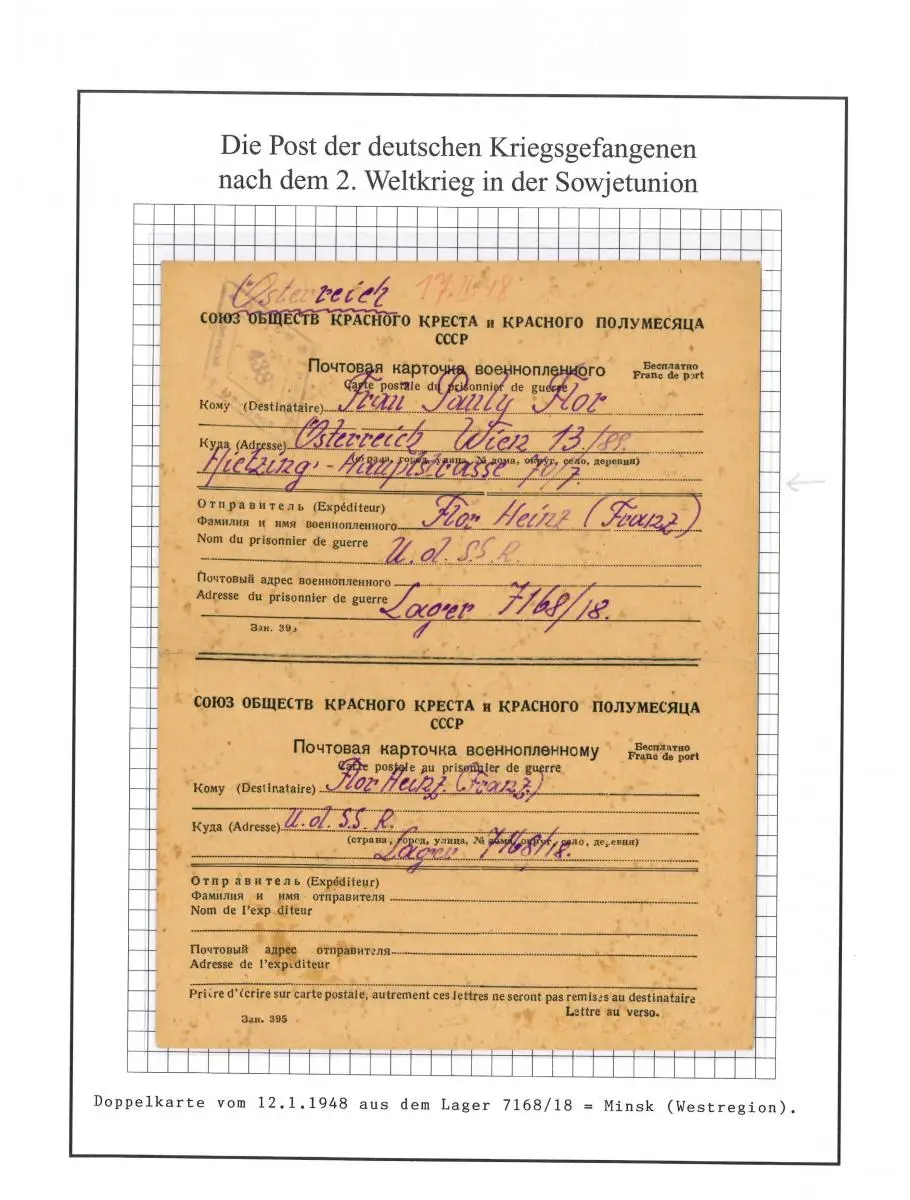 Die Post der deutschen Kriegsgefangenen
nach dem 2. Weltkrieg in der Sowjetunion
Österreich
СОЮЗ ОБЩЕСТВ КРАСНОГО КРЕСТА и КРАСНОГО ПОЛУМЕСЯЦА
СССР
Почтовая карточка военнопленного
Бесплатно
Carte postale du prisonnier de guerre
Franc de port
Кому (Destinataire) Frau Pauly Flor
Куда (Adresse) Österreich Wien 13/89.
(страна, город, улица, № дома, округ, село, деревня)
Hietzing-Hauptstrasse
Отправитель (Expéditeur)
Фамилия и имя военнопленного Flor Heinz (Franz)
Nom du prisonnier de guerre
U.d.S.S.R.
Почтовый адрес военнопленного
Adresse du prisonnier de guerre Lager 7168/18.
Зак. 395
СОЮЗ ОБЩЕСТВ КРАСНОГО КРЕСТА и КРАСНОГО ПОЛУМЕСЯЦА
СССР
Почтовая карточка военнопленному
Бесплатно
Carte postale au prisonnier de guerre
Franc de port
Кому (Destinataire) Flor Heinz (Franz)
Куда (Adresse) U.d.S.S.R.
(страна, город, улица, № дома, округ, село, деревня)
Lager 7168/18.
Отправитель (Expéditeur)
Фамилия и имя отправителя
Nom de l'exp diteur
Почтовый адрес отправителя
Adresse de l'expéditeur
Prière d'écrire sur carte postale, autrement ces lettres ne seront pas remises au destinataire
Lettre au verso.
Зак. 395
Doppelkarte vom 12.1.1948 aus dem Lager 7168/18 = Minsk (Westregion).